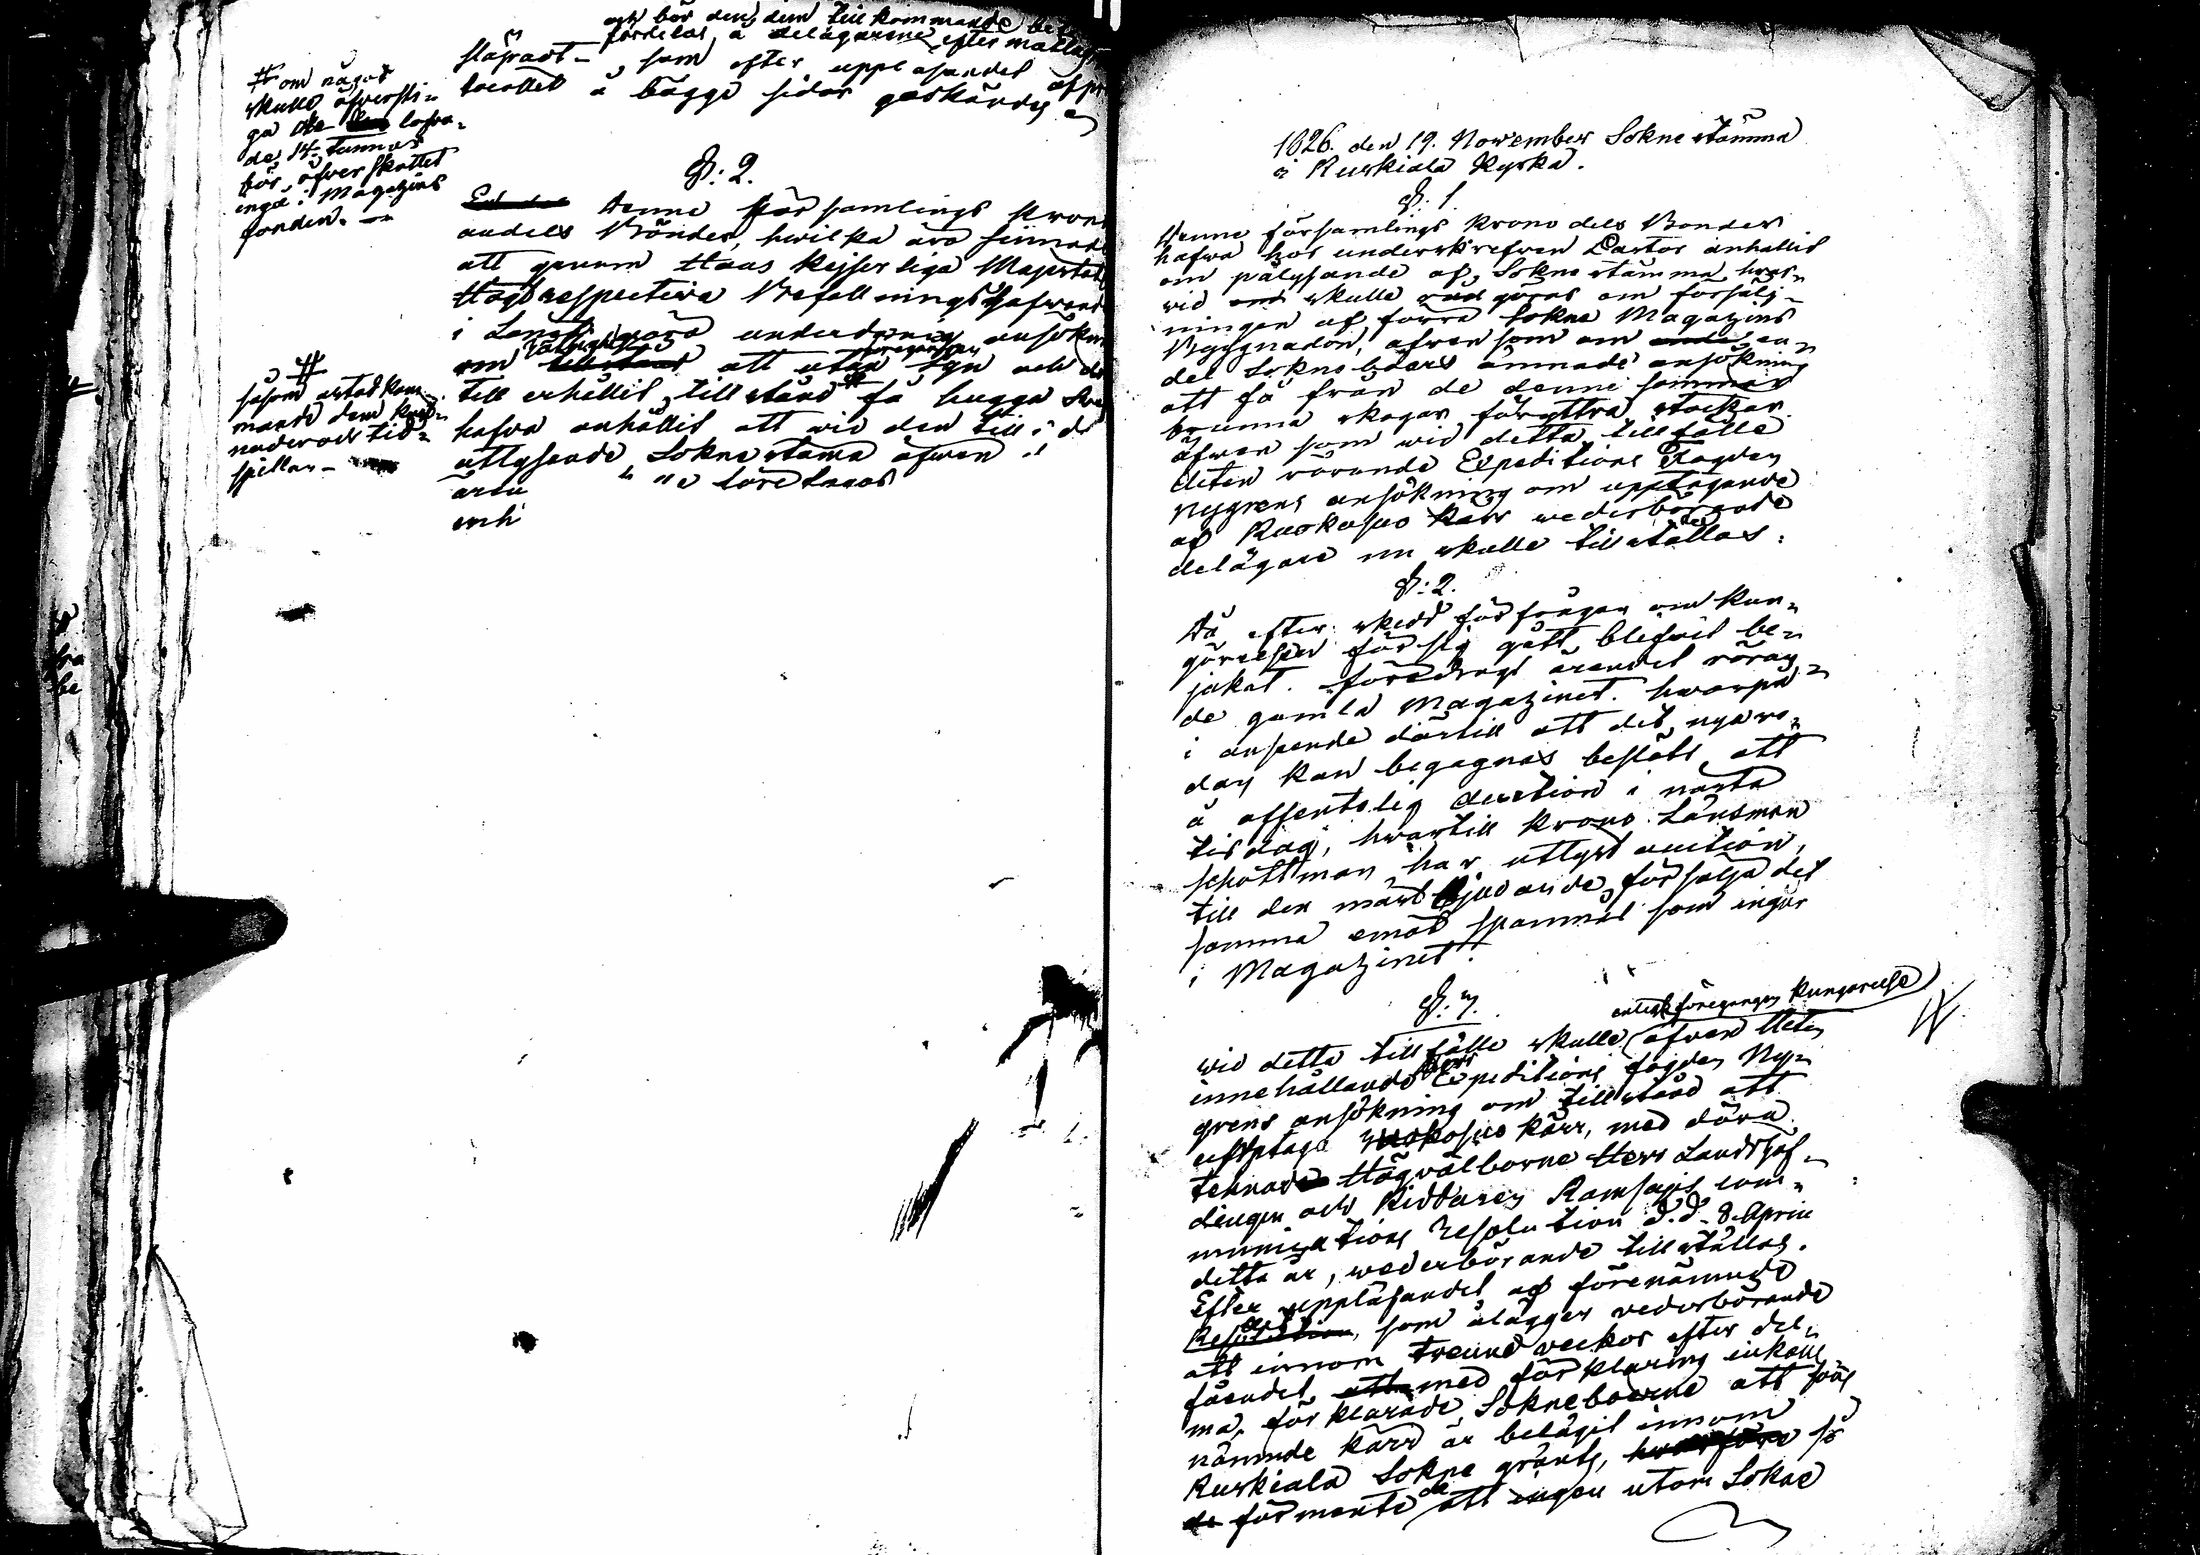 och bör den, dem tillkommande
fördelas å delägarne efter
slåpadt - som efter uppläsandet af
tocollet å bägge sidor godkändes
# om något
skulle öfversti-
ga de lofva-
de 14 tunnor
bör öfverskottet
ingå i Magazins
fonden. -
§: 2.
Denne församlings
andels Bönder, hvilka äro sinnade
att genom Hans Kejserliga Majestäts
Högtrespective Befallningshafwande
i underdånig ansökning
om att utan föregången syn och
till erhållit tillstånd få hugga
hafva anhållit att wid den till i
utlysande Soknestäma äfwen
företages
#
såsom åstadkom-
mande dem kost-
nader och tid-
spillan -
1826. den 19. November Soknestämma
i Ruskiala Kyrka.
§: 1.
Denne församlings Krono dels Bönder
hafwa hos underskrefwen Pastor anhållit
om pålysande af Sokne stämma, hwar-
wid skulle göras om försälj-
ningen af förra Sokne Magazins
Byggnaden, äfwen som om en
del Soknebôers ämnade ansökning
att få från de denne sommar
brunna skogar föryttra stockar.
äfwen som wid detta tillfälle
deten rörande Expeditions Fogden
Nygrens ansökning om upptagande
af Ruokosuo Kärr wederbörande
delägare nu skulle tillställas.
§: 2.
Då, efter skedd förfrågan om kun-
görelsen för sig gått blifvit be-
jakat. föredrogs ärendet röran-
de gamla Magazinet. hwarpå
i anseende därtill att det nya re-
dan kan begagnas beslöts att
å offentelig auction i nästa
tisdag, hwartill Krono Länsman
Schottman har utlyst auction,
till den mäst bjudande försälja det
samma emot spanmål som ingår
i Magazinet.
§: 3.
enligt föregången kungörelse
wid detta tillfälle skulle äfwen
innehållande Herr Expeditions fogden Ny-
grens ansökning om tillstånd att
upptaga Ruokosuo kärr, med dära
tecknade Högvälborne Herr Landshöf-
dingen och Riddaren Ramsays com-
munications Resolution d.d. 8. April
detta år, wederbörande tillställas.
Efter uppläsandet af förenämnde
som ålägger vederbörande
att innom Trenne veckor efter del-
fåendet, med förklaring inkom-
ma, förklarade Sokneboerne att före
nämnde kärr är belägit innom
Ruskiala Sokne gränts, så
förmente de att ingen utom Sokne